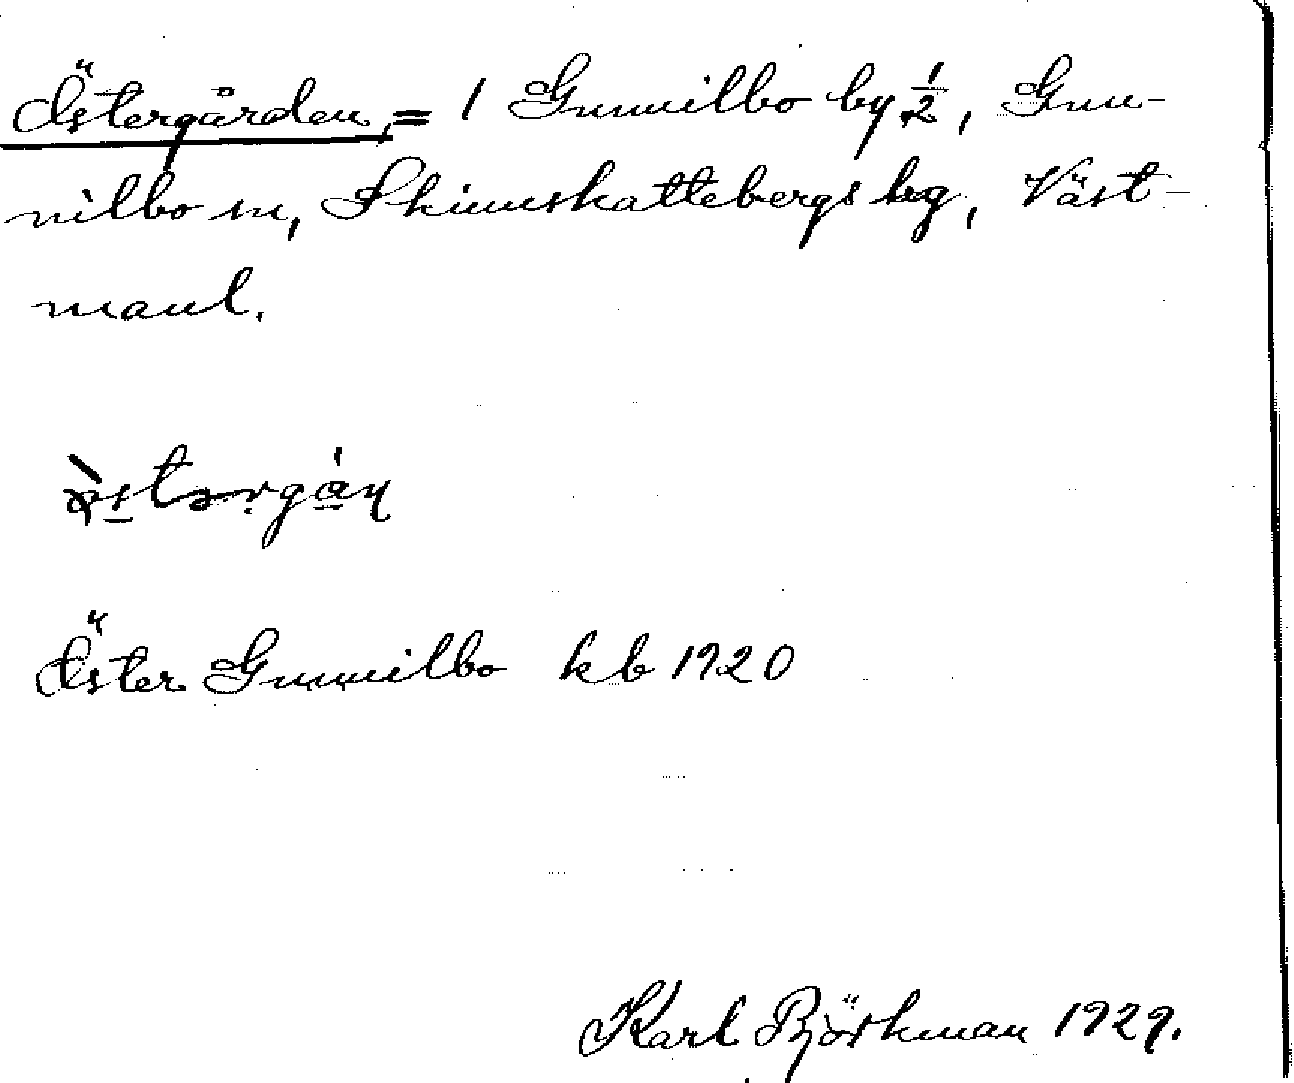 Östergården, = 1 Gunnilbo by 1/2, Gun-
nilbo sn, Skinnskattebergs hg, Väst-
manl.
Öster Gunnilbo kb 1920
Karl Björkman 1929.